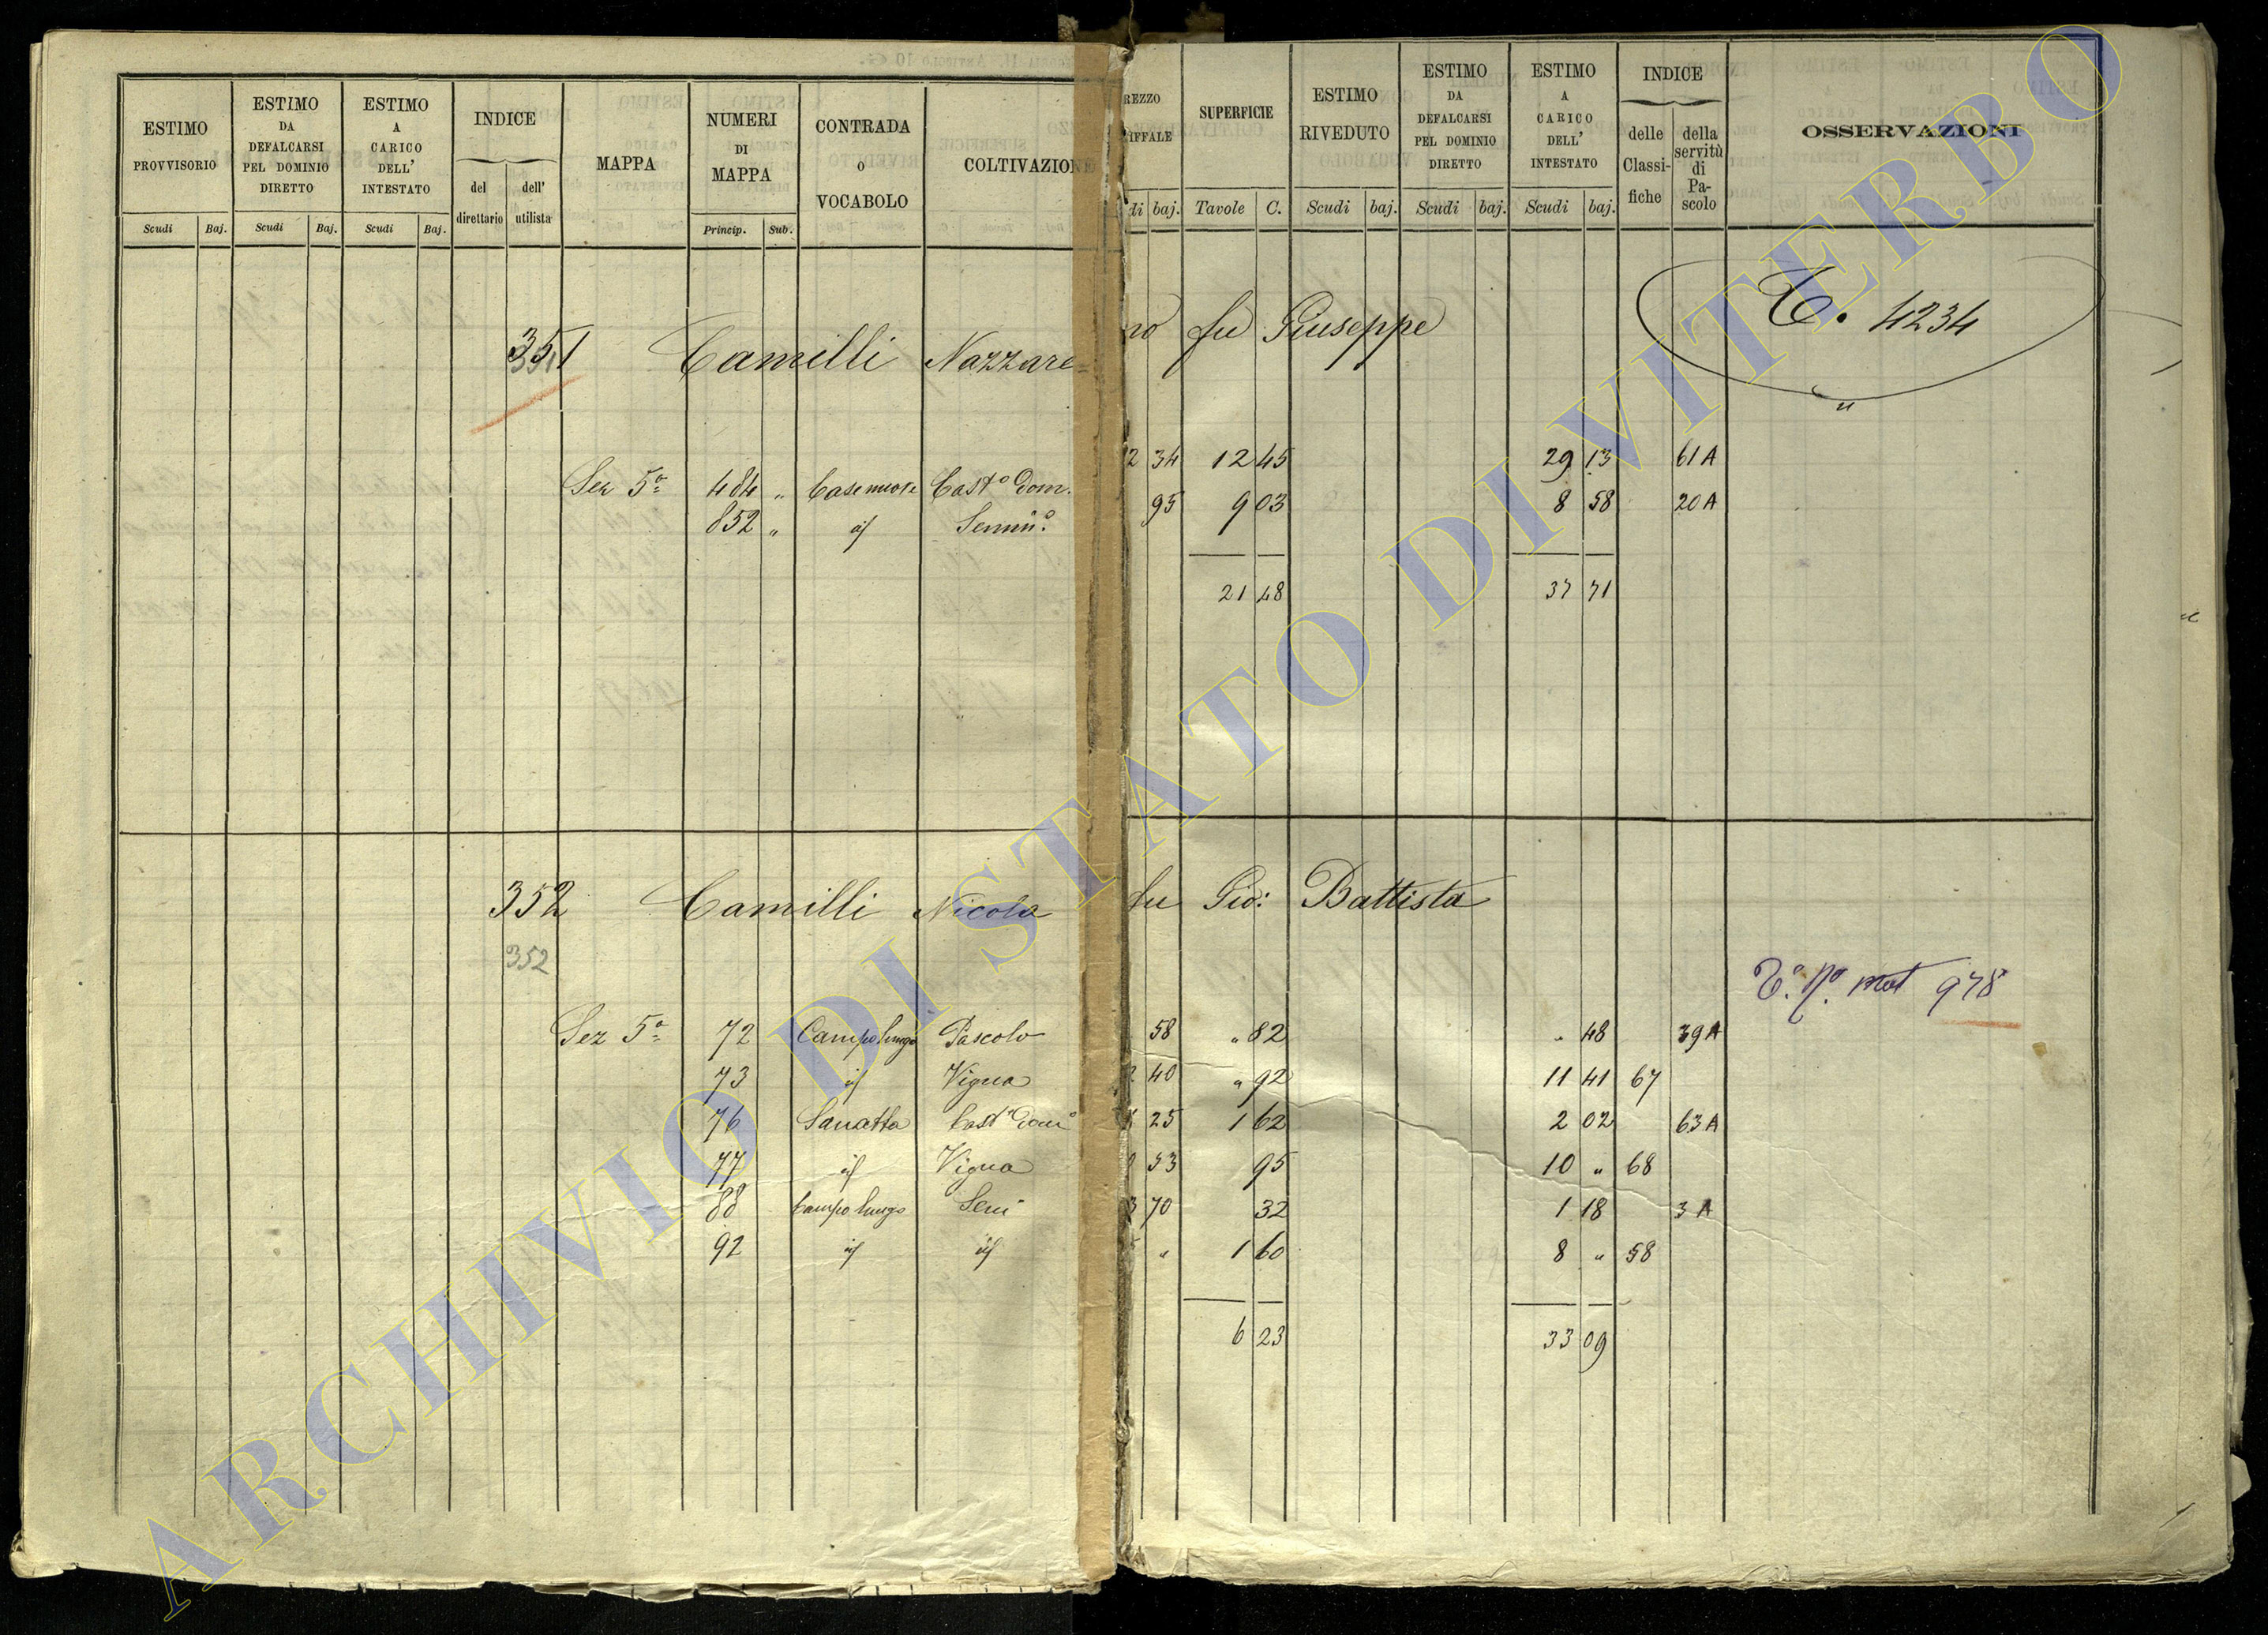 ESTIMO PROVVISORIO
Scudi Baj.
ESTIMO DA DEFALCARSI PEL DOMINIO DIRETTO
Scudi Baj.
ESTIMO A CARICO DELL' INTESTATO
Scudi Baj.
INDICE
del direttario
dell' utilista
MAPPA
NUMERI DI MAPPA
Princip. Sub.
CONTRADA O VOCABOLO
COLTIVAZIONE
REZZO
IFFALE
di baj.
SUPERFICIE
Tavole C.
ESTIMO RIVEDUTO
Scudi baj.
ESTIMO DA DEFALCARSI PEL DOMINIO DIRETTO
Scudi baj.
ESTIMO A CARICO DELL' INTESTATO
Scudi baj.
INDICE
delle Classifiche
della servitù di Pascolo
OSSERVAZIONI
351 Camilli Nazzare= no fu Giuseppe
351
4234
Sez 5ª 484 " Casenuove Castº Dom. 2 34 12 45 29 13 61 A
852 " id Semin.º 95 9 03 8 58 20 A
21 48 37 71
352 Camilli Nicola fu Gio: Battista
352
mat 978
Sez 5ª 72 Campolungo Pascolo 58 " 82 " 48 39 A
73 id Vigna 2 40 " 92 11 41 67
76 Castº Domº 25 1 62 2 02 63 A
77 id Vigna 53 95 10 " 68
88 Campolungo Sem 3 70 32 1 18 3 A
92 id id " 1 60 8 " 58
6 23 33 09
ARCHIVIO DI STATO DI VITERBO